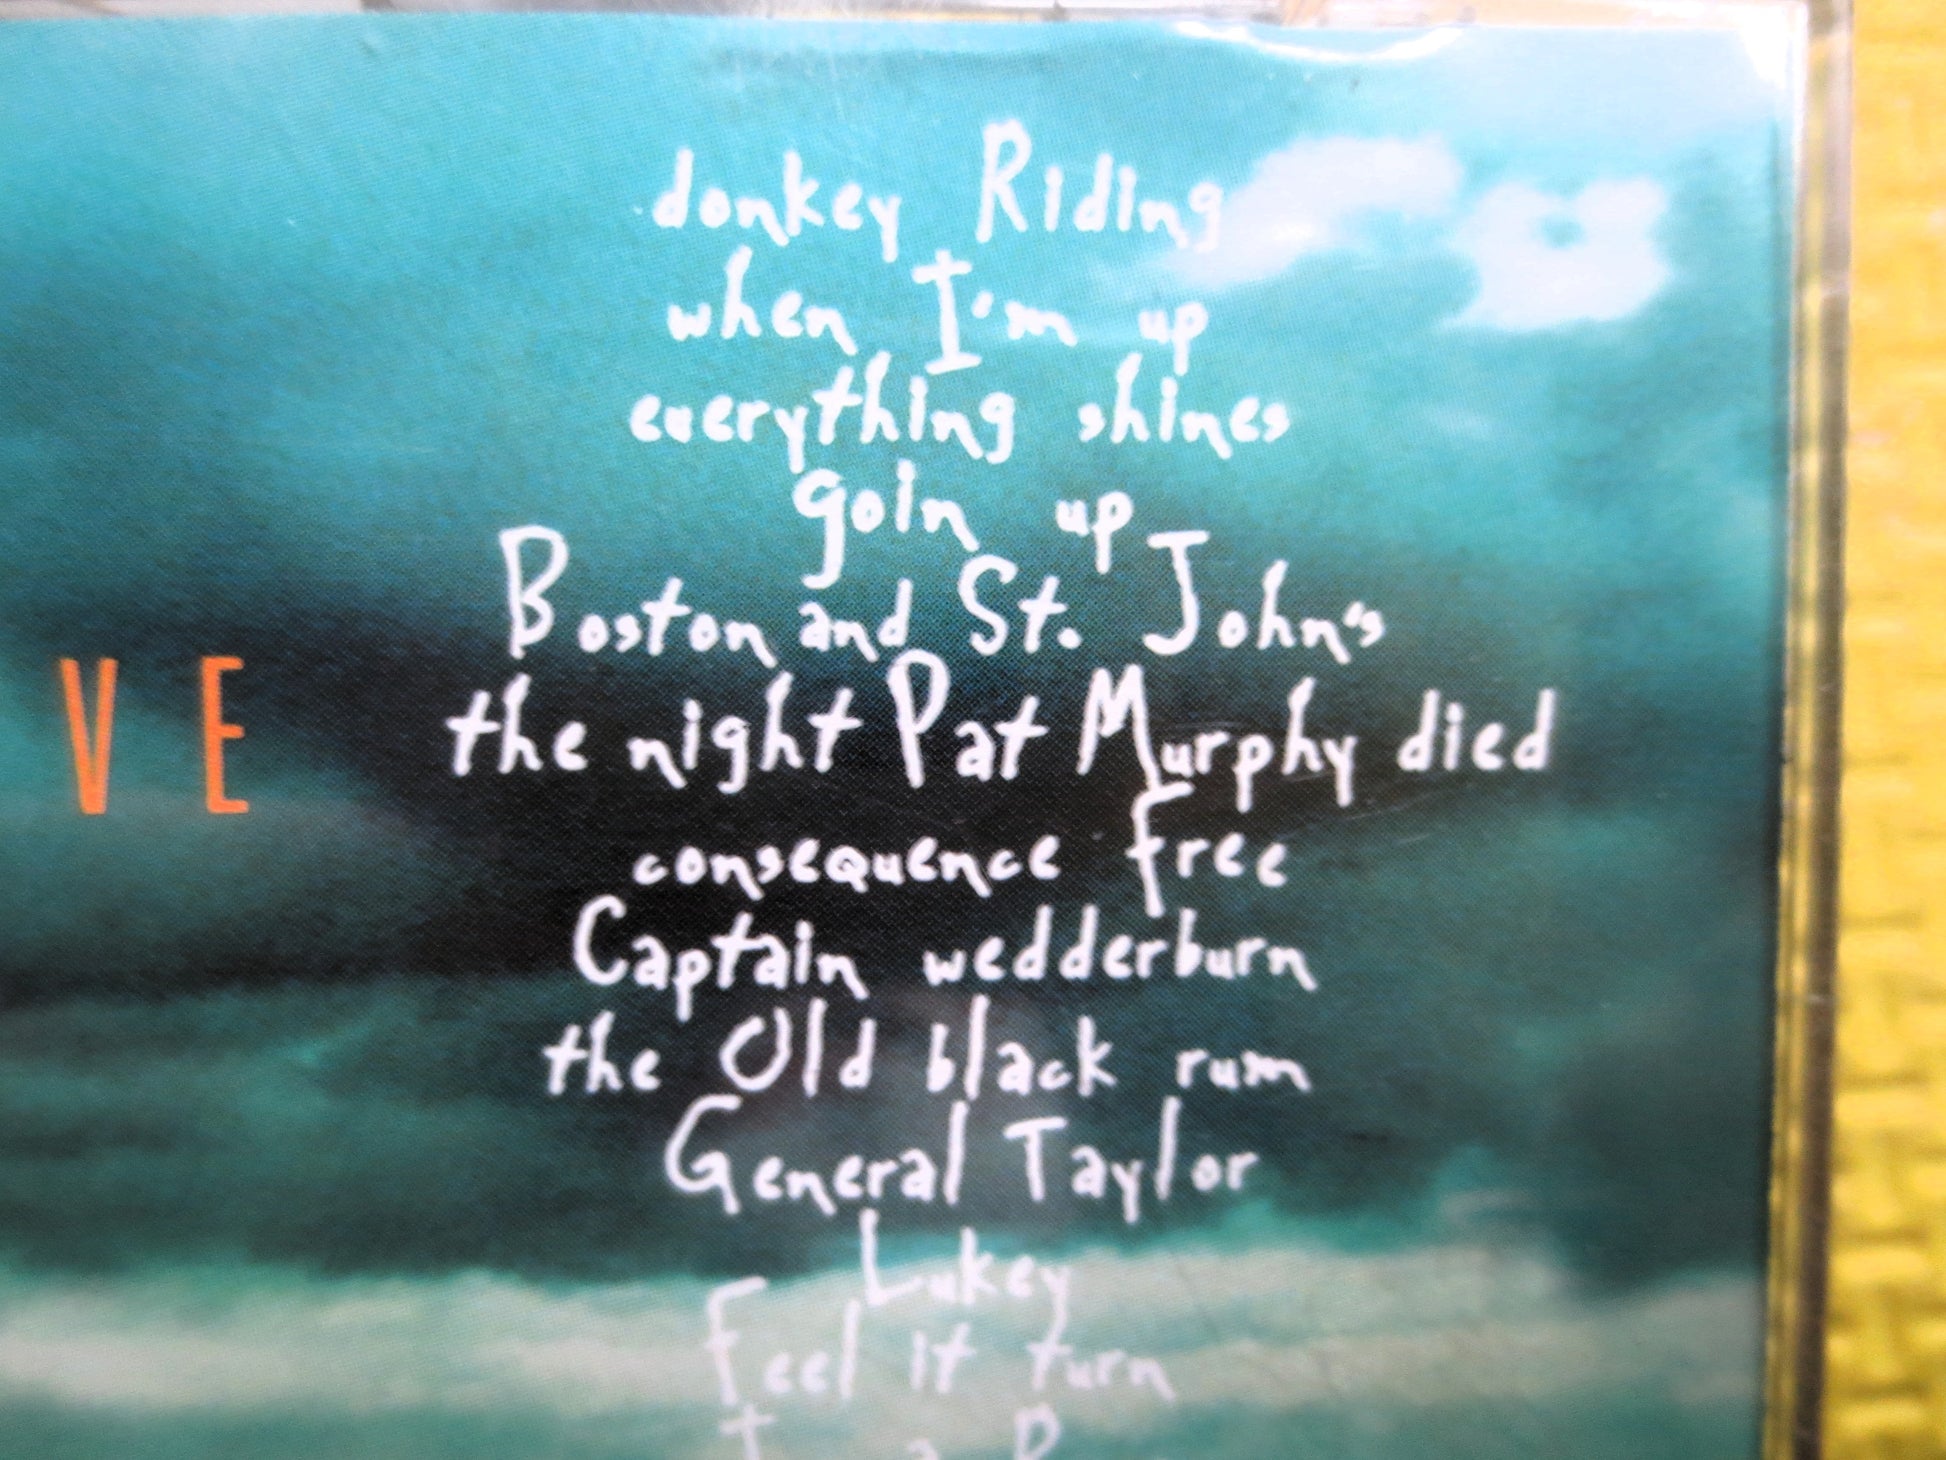 donkey Riding
when I'm up
everything shines
goin up
Boston and St. John's
the night Pat Murphy died
V E
consequence free
Captain wedderburn
the Old black rum
General Taylor
Lukey
Feel it turn